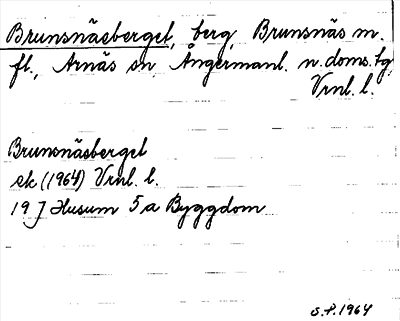 Brunsnäsberget, berg, Brunsnäs m.
fl., Arnäs sn Ångermanl. n. doms. tg,
Vrnl. l.
Brunsnäsberget
ek (1964) Vrnl. l.
19 J Husum 5 a Byggdom
S.P. 1964